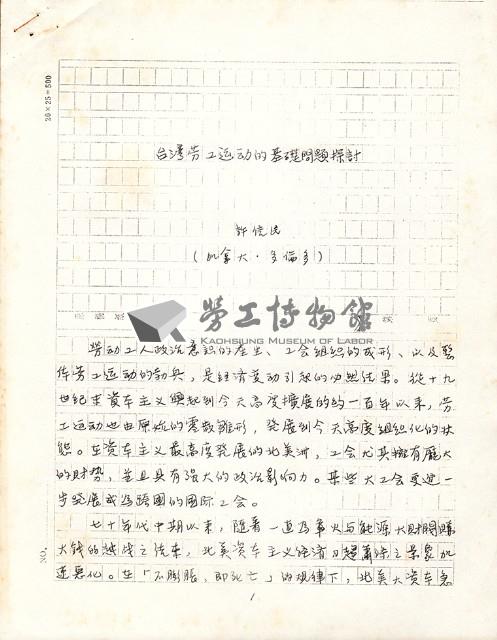 20×25=500
台灣劳工运动的基礎問題探討
許信良
(加拿大·多倫多)
勞工博物館
KAOHSIUNG MUSEUM OF LABOR
劳动工人政治意识的產生、工会组织的成形、以及整
体劳工运动的勃兴，是经濟变动引起的必然结果。從十九
世纪末資本主义興起到今天高度擴展的约一百年以来，劳
工运动也由原始的零散雛形，發展到今天高度组织化的状
態。在資本主义最高度發展的北美洲，工会尤其擁有龐大
的財势，並且具有强大的政治影响力。某些大工会更進一
步發展成為跨國的国际工会。
七十年代中期以来，随著一直為軍火与能源大財閥賺
大钱的越战之结束，北美資本主义经濟日趨蕭條之景象加
速惡化。在「不膨脹，即死亡」的規律下，北美大資本急
NO.
1